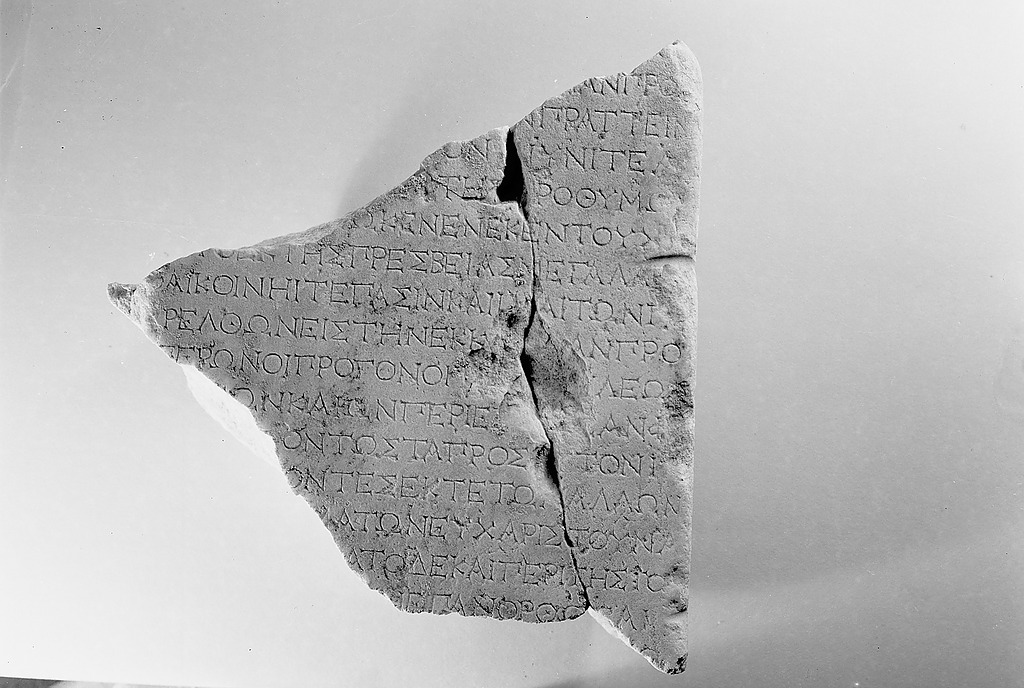 ΑΝΠΡΟ
ΠΡΑΤΤΕΙΝ
ΩΝ ΥΝΙΤΕΛ
ΤΗΣ ΡΟΘΥΜΩ
ΩΚΕΝΕΝΕΚΕΝΤΟΥΣ
ΘΕΝΤΗΣΠΡΕΣΒΕΙΑΣΜΕΓΑΛΑ
ΑΙΚΟΙΝΗΙΤΕΠΑΣΙΝΚΑΙ ΑΙΤΩΝΙ
ΡΕΛΘΩΝΕΙΣΤΗΝΕΚΚΛ ΑΝΠΡΟ
ΤΕΡΩΝΟΙΠΡΟΓΟΝΟΙ ΛΕΩ
ΩΝΚΑΙ ΝΠΕΡΙΕ ΑΝΦ
ΟΝΤΩΣΤΑΠΡΟΣ ΤΟΝΠ
ΟΝΤΕΣΕΚΤΕΤΩΝΑΛΛΩΝ
ΑΤΩΝΕΥΧΑΡΙΣΤΟΥΝ
ΑΤΟΔΕΚΑΙΠΕΡΙΤΗΣΤΟ
ΕΠΑΝΟΡΘΩ